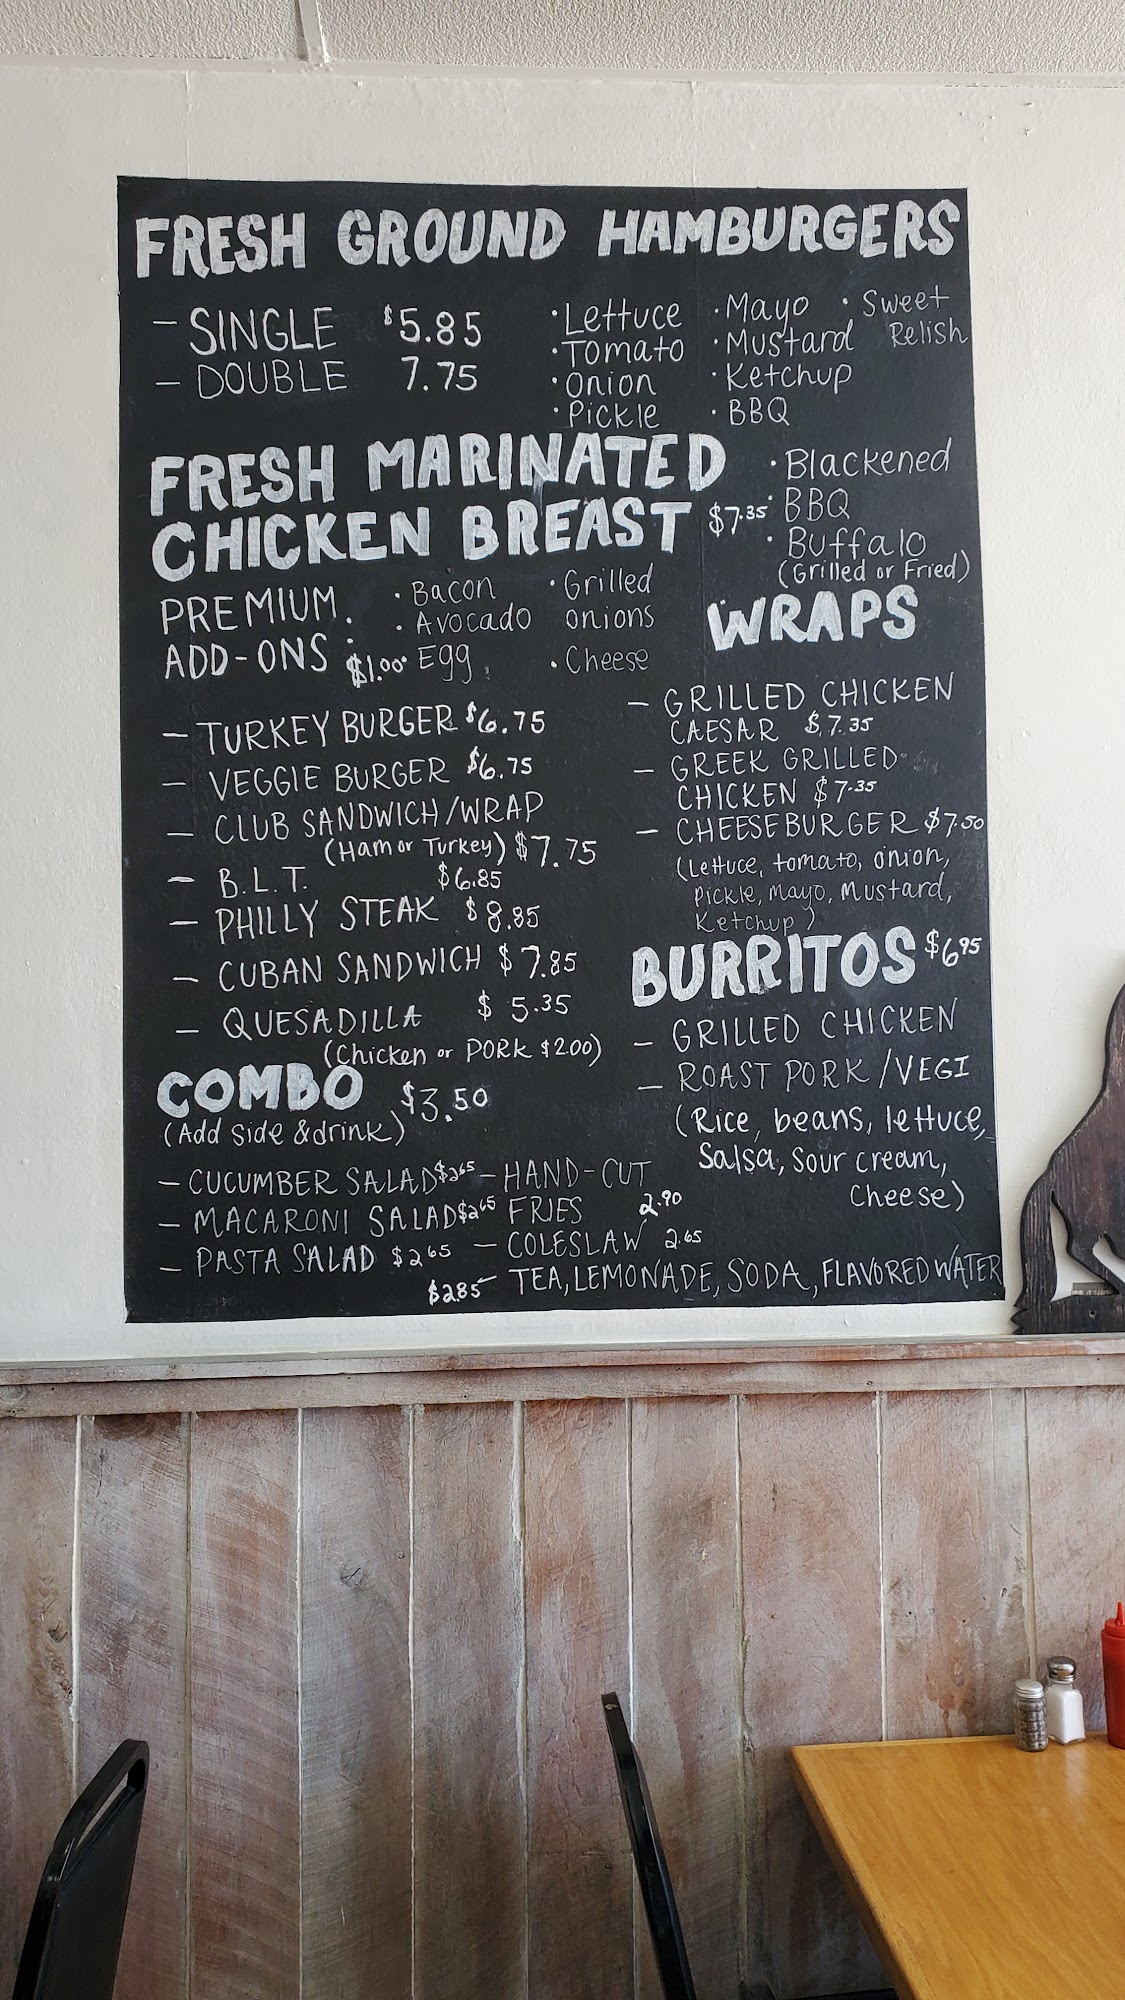 FRESH GROUND HAMBURGERS
- SINGLE $5.85
- DOUBLE 7.75
• Lettuce
• Tomato
• Onion
• Pickle
• Mayo
• Mustard
• Ketchup
• BBQ
• Sweet
Relish
FRESH MARINATED
CHICKEN BREAST $7.35
• Blackened
• BBQ
• Buffalo
(Grilled or Fried)
PREMIUM :
ADD-ONS : $1.00
• Bacon
• Avocado
• Egg
• Grilled
onions
• Cheese
- TURKEY BURGER $6.75
- VEGGIE BURGER $6.75
- CLUB SANDWICH/WRAP
(Ham or Turkey) $7.75
- B.L.T. $6.85
- PHILLY STEAK $8.85
- CUBAN SANDWICH $7.85
- QUESADILLA $5.35
(Chicken or PORK $2.00)
WRAPS
- GRILLED CHICKEN
CAESAR $7.35
- GREEK GRILLED
CHICKEN $7.35
- CHEESEBURGER $7.50
(Lettuce, tomato, onion,
Pickle, Mayo, Mustard,
Ketchup)
BURRITOS $6.95
- GRILLED CHICKEN
- ROAST PORK/VEGI
(Rice, beans, lettuce,
Salsa, Sour cream,
Cheese)
COMBO $3.50
(Add Side & drink)
- CUCUMBER SALAD $2.65
- MACARONI SALAD $2.65
- PASTA SALAD $2.65
- HAND-CUT
FRIES 2.90
- COLESLAW 2.65
$2.85 - TEA, LEMONADE, SODA, FLAVORED WATER